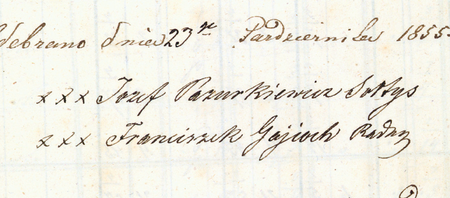 debrano dnia 23go Pazdziernika 1855.
xxx Jozef Pazurkiewicz Sołtys
xxx Franciszek Gajioch Radny